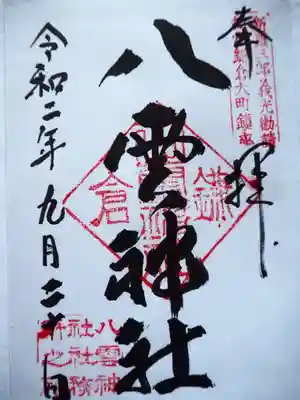 奉拝
新羅三郎義光勧請
鎌倉大町鎮座
八雲神社
鎌倉
令和二年九月二十日
八雲神
社社務
所之印